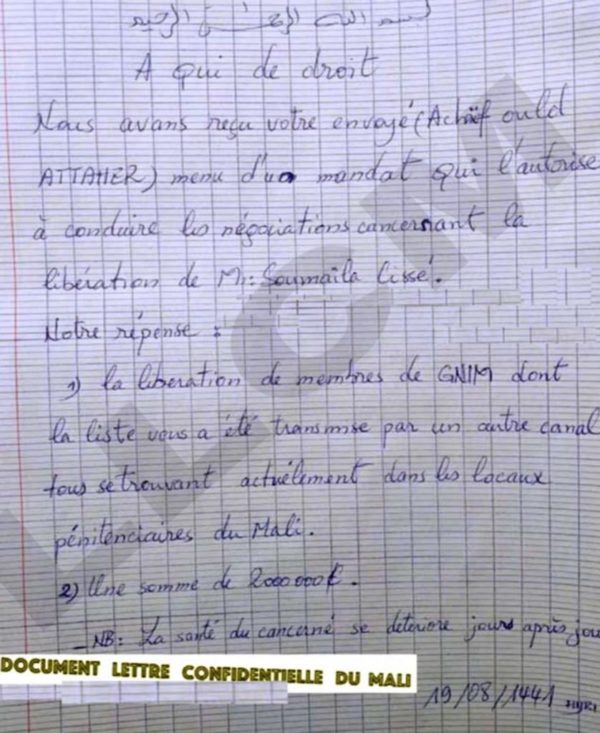 بسم الله الرحمن الرحيم
A qui de droit
Nous avans reçu votre envoyé (Achéef ould
ATTAHER) menu d'un mandat qui l'autorise
à conduire les négociations concernant la
libération de Mr: Soumaila Cissé.
Notre réponse :
1) la liberation de membres de GNIM dont
la liste vous a été transmise par un autre canal
tous se trouvant actuélement dans les locaux
pénitenciaires du Mali.
2) Une somme de 2000 000€.
_NB: La santé du concerné se deteriore jours après jou
DOCUMENT LETTRE CONFIDENTIELLE DU MALI
19/08/1441
LLCM